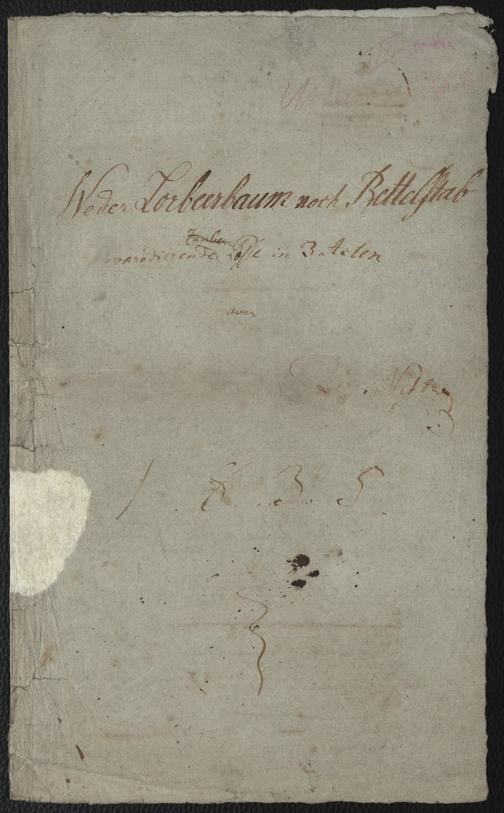 Weder Lorbeerbaum noch Bettelstab
parodierende Posse in 3 Acten
von
J. Nestroy
1 8 3 5.